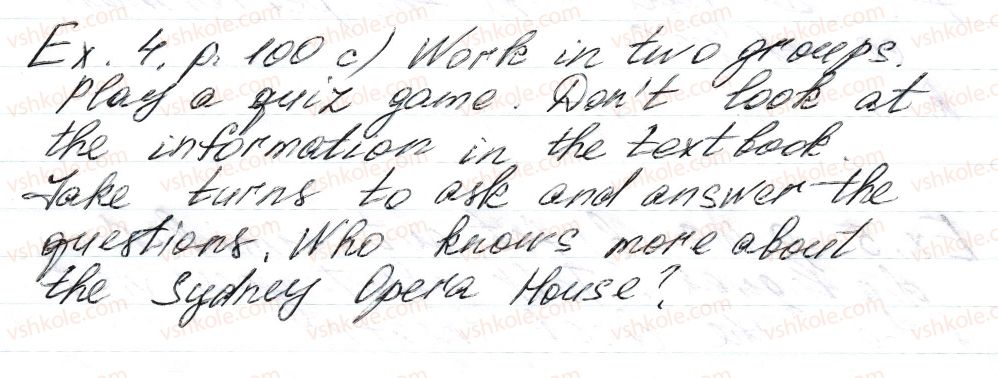 Ex. 4. p. 100 c) Work in two groups.
Play a quiz game. Don't look at
the information in the textbook.
Take turns to ask and answer the
questions. Who knows more about
the Sydney Opera House?